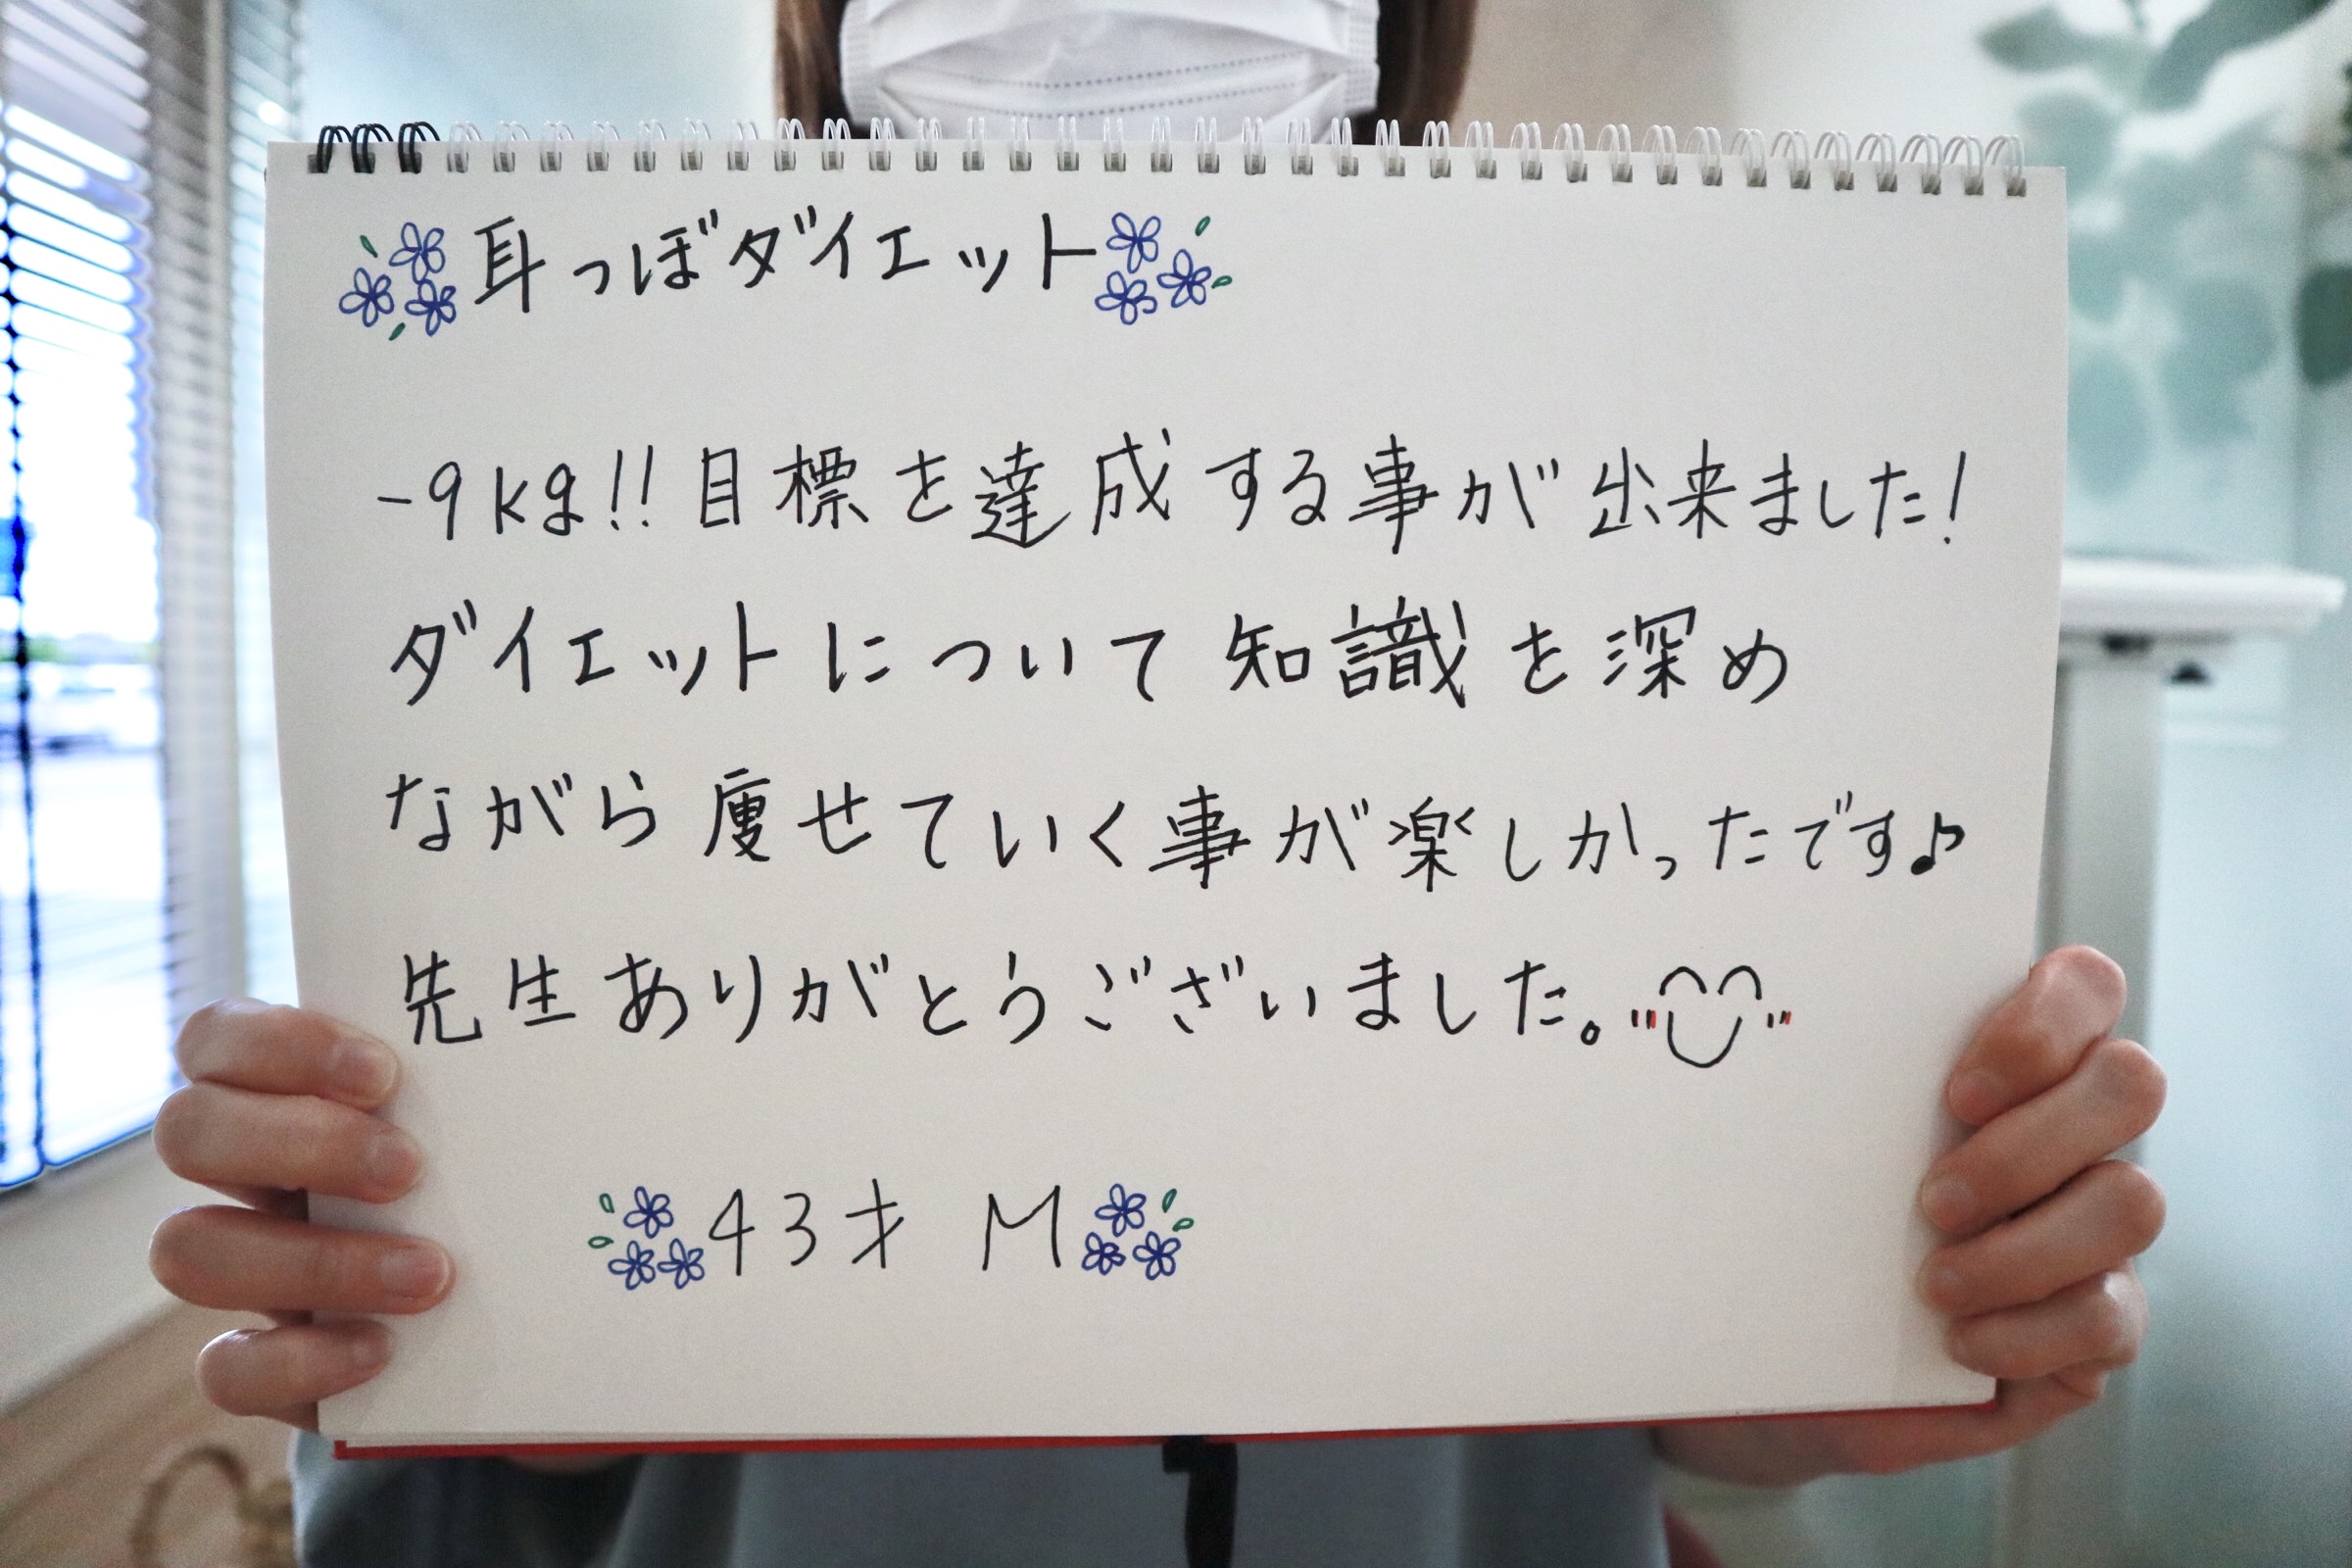 耳つぼダイエット
-9kg!!目標を達成する事が出来ました!
ダイエットについて知識を深め
ながら痩せていく事が楽しかったです♪
先生ありがとうございました。
43才 M